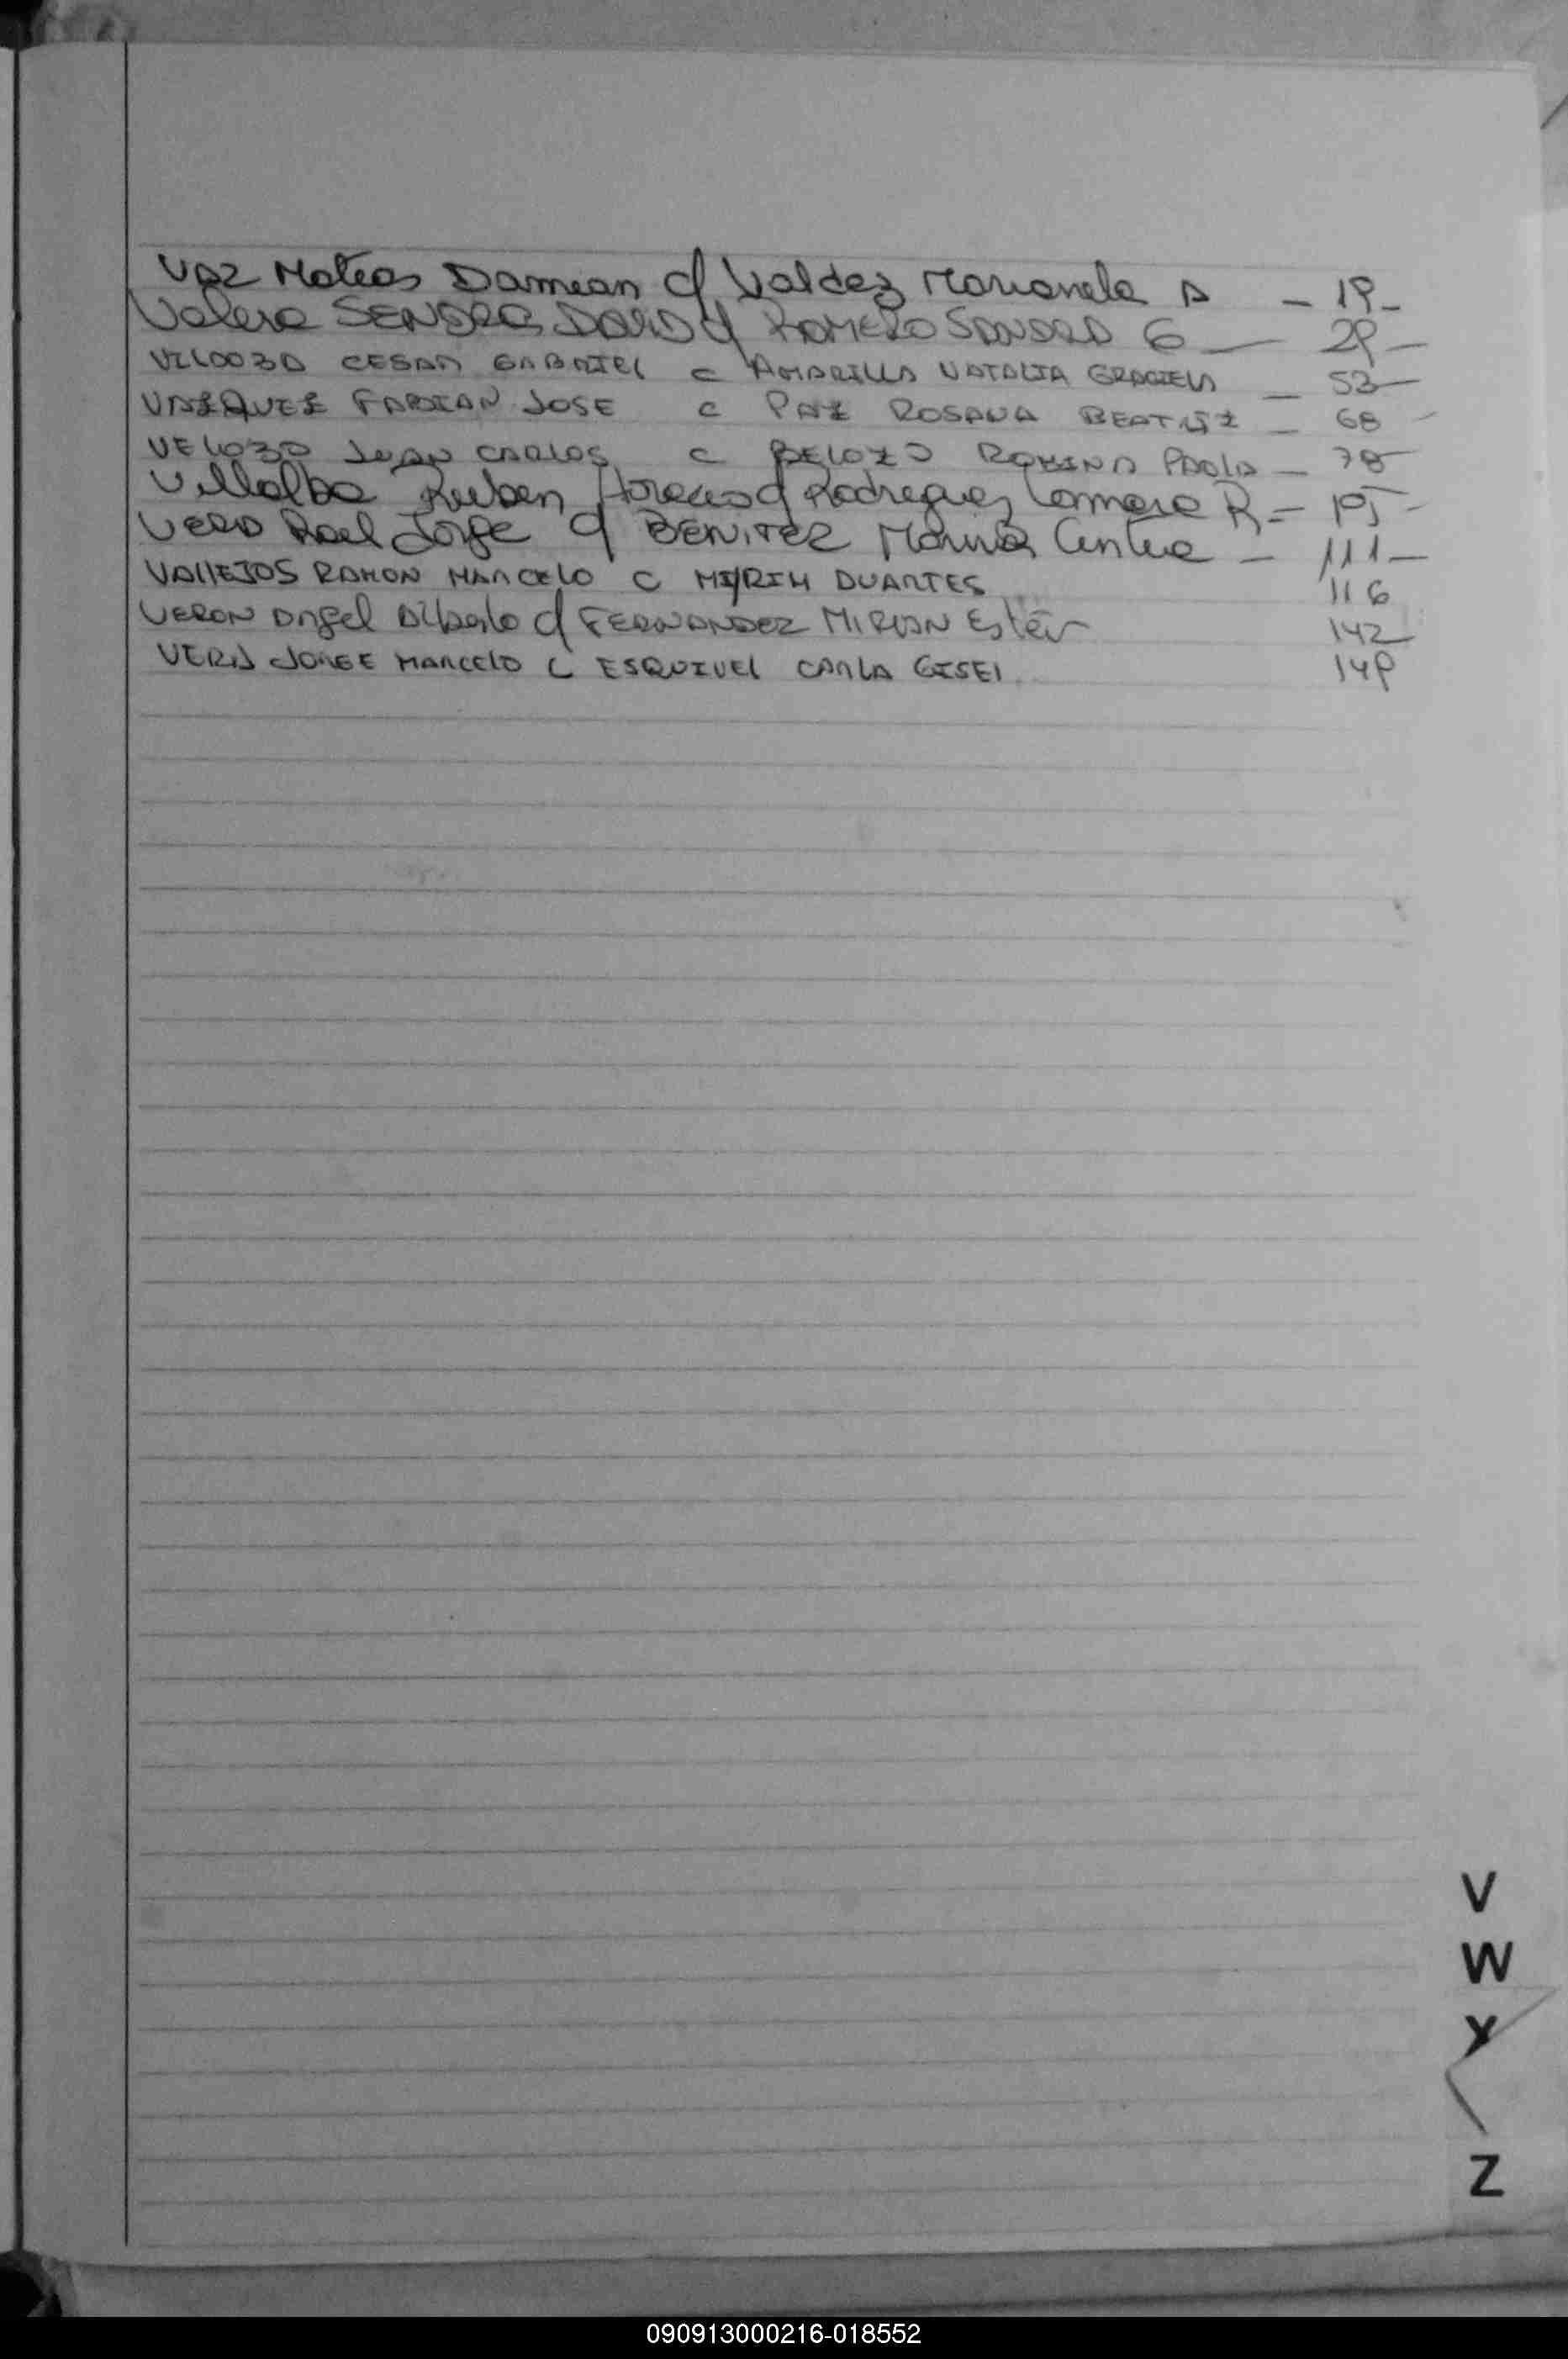 VAZ Mateas Damian c/ Valdez Marianela A - 19-
Valera SENDRA DARIO c/ ROMERO SANDRA G — 29-
VELOOZO CESAR GABRIEL c AMARILLA NATALIA GRACIELA - 53-
VASQUEZ FABIAN JOSE c PAZ ROSANA BEATRIZ - 68
VELOZO JUAN CARLOS c BELOZO ROMINA PAOLA - 78
Villalba Ruben Horacio c/ Rodriguez R = 105-
VERA Jorge c/ BENITEZ Maria - 111-
VALLEJOS RAMON MARCELO C MIRIM DUARTES 116
VERON Angel Alberto c/ FERNANDEZ MIRIAN Ester 142
VERA JORGE MARCELO C ESQUIVEL CARLA GISEL 149
V
W
Y
Z
090913000216-018552